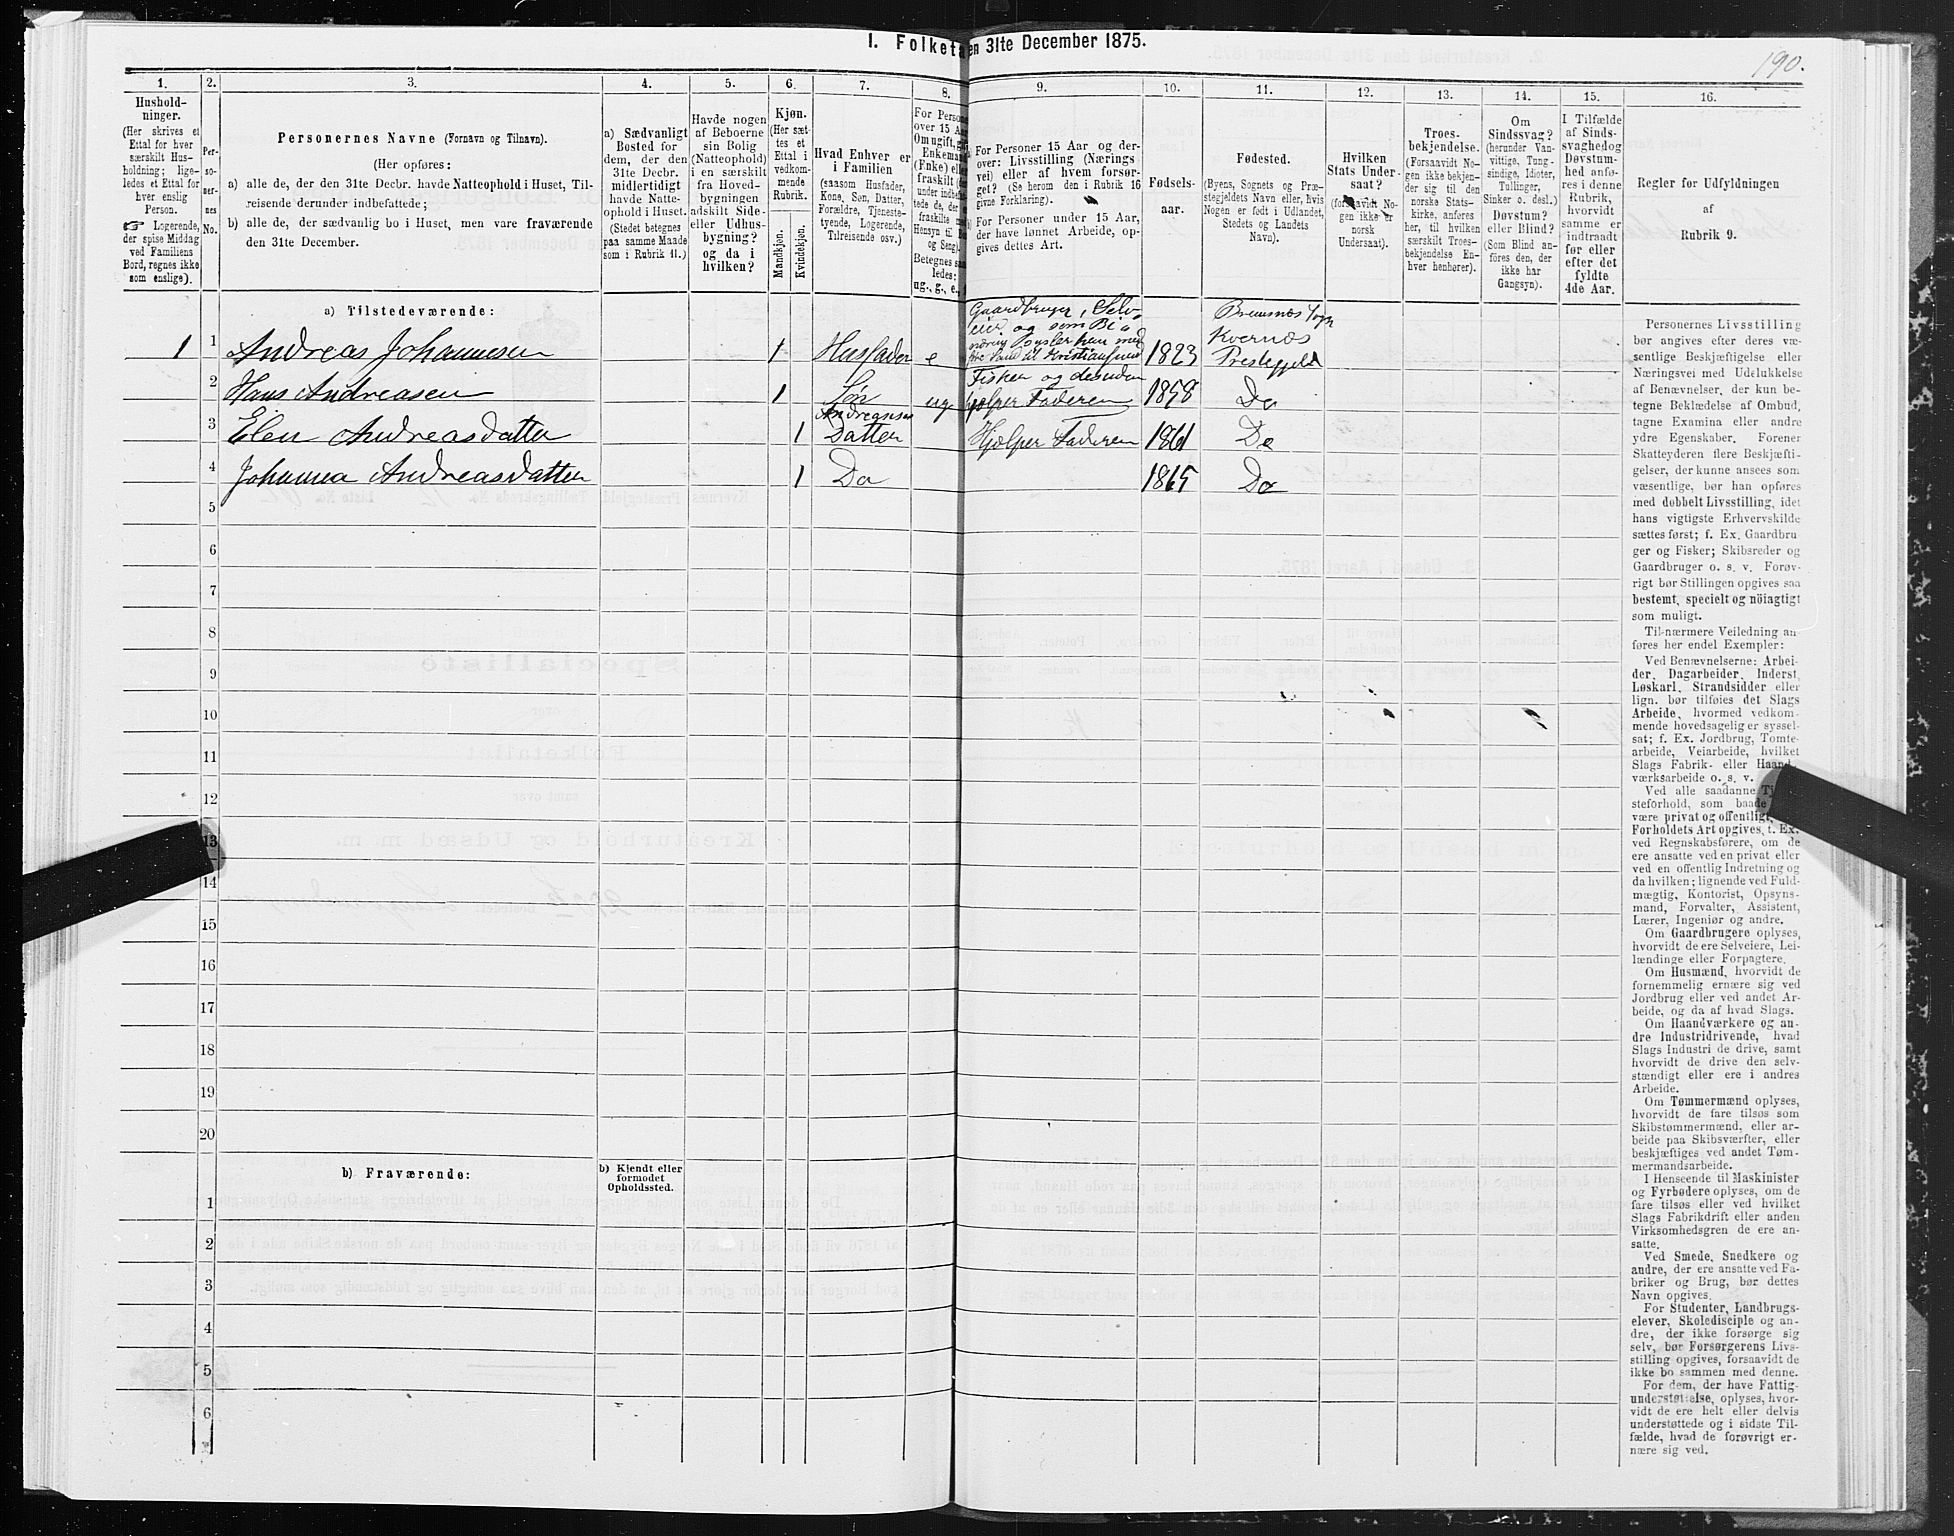 I. Folketa en 31te December 1875.
190.
1.
Hushold-
ninger.
(Her skrives et
Ettal for hver
særskilt Hus-
holdning; lige-
ledes et Ettal for
hver enslig
Person.
Logerende,
der spise Middag
ved Familiens
Bord, regnes ikke
som enslige).
2.
Per-
so-
ner-
nes
No.
3.
Personernes Navne (Fornavn og Tilnavn).
(Her opføres:
a) alle de, der den 31te Decbr. havde Natteophold i Huset, Til-
reisende derunder indbefattede;
b) alle de, der sædvanlig bo i Huset, men vare fraværende
den 31te December.
4.
a) Sædvanligt
Bosted for
dem, der den
31te Decbr.
midlertidigt
havde Natte-
ophold i Huset.
(Stedet betegnes
paa samme Maade
som i Rubrik 11.)
5.
Havde nogen
af Beboerne
sin Bolig
(Natteophold)
i en særskilt
fra Hoved-
bygningen
adskilt Side-
eller Udhus-
bygning?
og da i
hvilken?
6.
Kjøn.
(Her sæt-
tes et
Ettal i
vedkom-
mende
Rubrik.
Mandkjøn.
Kvindekjøn.
7.
Hvad Enhver er
i Familien
(saasom Husfader,
Kone, Søn, Datter,
Forældre, Tjeneste-
tyende, Logerende,
Tilreisende osv.)
8.
For Persone
over 15 Aa
Om ugift, gi
Enkemand
(Enke) elle
fraskilt
under indbef
tede de,
fraskilte m
Hensyn til B
og Seng).
Betegnes saa
ledes:
ug., g., e.,
9.
For Personer 15 Aar og der-
over: Livsstilling (Nærings
vei) eller af hvem forsør-
get? (Se herom den i Rubrik 16
givne Forklaring).
b) For Personer under 15 Aar,
der have lønnet Arbeide, op-
gives dettes Art.
10.
Fødsels-
aar.
11.
Fødested.
(Byens, Sognets og Præ-
stegjeldets Navn eller, hvis
Nogen er født i Udlandet,
Stedets og Landets
Navn).
12.
Hvilken
Stats Under-
saat?
(forsaavidt No-
gen ikke er
norsk
Undersaat).
13.
Troes-
bekjendelse.
(Forsaavidt No-
gen ikke bekjen-
der sig til den
norske Stats-
kirke, anføres
her, til hvilken
særskilt Troes-
bekjendelse En-
hver henhører).
14.
Om
Sindssvag?
(herunder Van-
vittige, Tung-
sindige, Idioter,
Tullinger,
Sinker o. desl.)
Døvstum?
eller Blind?
(Som Blind an-
føres den, der
ikke har
Gangsyn).
15.
I Tilfælde
af Sinds-
svaghed og
Døvstum-
hed anfø-
res i denne
Rubrik,
hvorvidt
samme er
indtraadt
før eller
efter det
fyldte
4de Aar.
16.
Regler for Udfyldningen
af
Rubrik 9.
a) Tilstedeværende:
1 1 Andreas Johannesen 1 Husfader e Gaardbruger, Selv-
eier og som Bi-
næring sysler han med
Sand til Kristiansund 1823 Bremsnes Sogn
Kvernæs
Prestegjeld
2 Hans Andreasen 1 Søn ug Fisker og desuden
hjælper Faderen 1858 Do
3 Elen Andreasdatter 1 Datter Hjælper Faderen 1861 Do
4 Johanna Andreasdatter 1 Do 1865 Do
5
6
7
8
9
10
11
12
13
14
15
16
17
18
19
20
b) Fraværende:
b) Kjendt eller
formodet
Opholdssted.
1
2
3
4
5
6
Personernes Livsstilling
bør angives efter deres væ-
sentlige Beskjæftigelse eller
Næringsvei med Udelukkelse
af Benævnelser, der kun be-
tegne Beklædelse af Ombud,
tagne Examina eller andre
ydre Egenskaber. Forener
Skatteyderen flere Beskjæfti-
gelser, der kunne ansees som
væsentlige, bør han opføres
med dobbelt Livsstilling, idet
hans vigtigste Erhvervskilde
sættes først; f. Ex. Gaardbru
ger og Fisker; Skibsreder og
Gaardbruger o. s. v. Forøv-
rigt bør Stillingen opgives saa
bestemt, specielt og nöiagtigt
som muligt.
Til nærmere Veiledning an-
føres her endel Exempler:
Ved Benævnelserne: Arbei-
der, Dagarbeider, Inderst,
Løskarl, Strandsidder eller
lign. bør tilføies det Slags
Arbeide, hvormed vedkom-
mende hovedsagelig er syssel-
sat; f. Ex. Jordbrug, Tomte-
arbeide, Veiarbeide, hvilket
Slags Fabrik- eller Haand-
værksarbeide o. s. v.
Ved alle saadanne Tj
steforhold, som baade
være privat og offentligt,
Forholdets Art opgives, t. Ex.
ved Regnskabsførere, om de
ere ansatte ved en privat eller
ved en offentlig Indretning og
da hvilken; lignende ved Fuld-
mægtig, Kontorist, Opsyns-
mand, Forvalter, Assistent,
Lærer, Ingeniør og andre.
Om Gaardbrugere oplyses,
hvorvidt de ere Selveiere, Lei-
lændinge eller Forpagtere.
Om Husmænd, hvorvidt de
fornemmelig ernære sig ved
Jordbrug eller ved andet Ar-
beide, og da af hvad Slags.
Om Haandværkere og an-
dre Industridrivende, hvad
Slags Industri de drive, samt
hvorvidt de drive den selv-
stændigt eller ere i andres
Arbeide.
Om Tømmermænd oplyses,
hvorvidt de fare tilsøs som
Skibstømmermænd, eller ar-
beide paa Skibsværfter, eller
beskjæftiges ved andet Tøm-
mermandsarbeide.
I Henseende til Maskinister
og Fyrbødere oplyses, om de
fare tilsøs eller ved hvilket
Slags Fabrikdrift eller anden
Virksomhedsgren de ere an-
satte.
Ved Smede, Snedkere og
andre, der ere ansatte ved Fa-
briker og Brug, bør dettes
Navn opgives.
For Studenter, Landbrugs-
elever, Skoledisciple og an-
dre, der ikke forsørge sig
selv, bør Forsørgerens Livs-
stilling opgives, forsaavidt de
ikke bo sammen med denne.
For dem, der have Fattig-
understøttelse, oplyses, hvor-
vidt de ere helt eller delvis
understøttede og i sidste Til-
fælde, hvad de forøvrigt er-
nære sig ved.